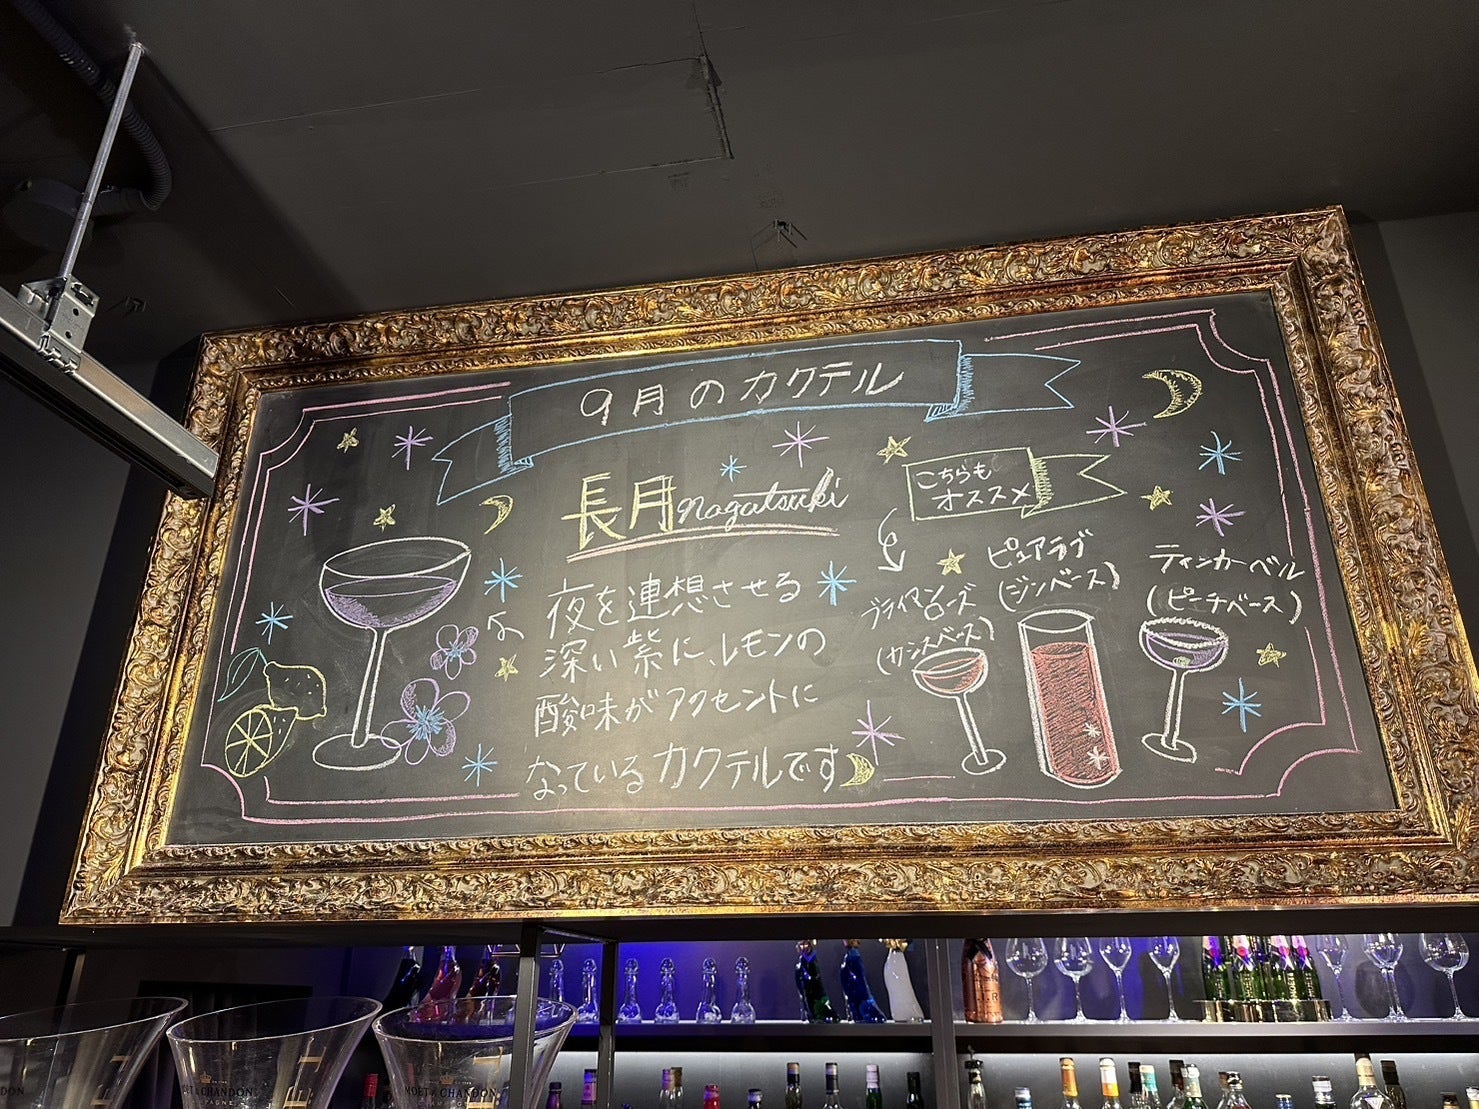 9月のカクテル
長月 Nagatsuki
夜を連想させる
深い紫に、レモンの
酸味がアクセントに
なっているカクテルです
こちらも
オススメ
プライマン
ローズ
(カシスベース)
ピュアラブ
(ジンベース)
ティンカーベル
(ピーチベース)
MOËT & CHANDON
MOËT & CHANDON